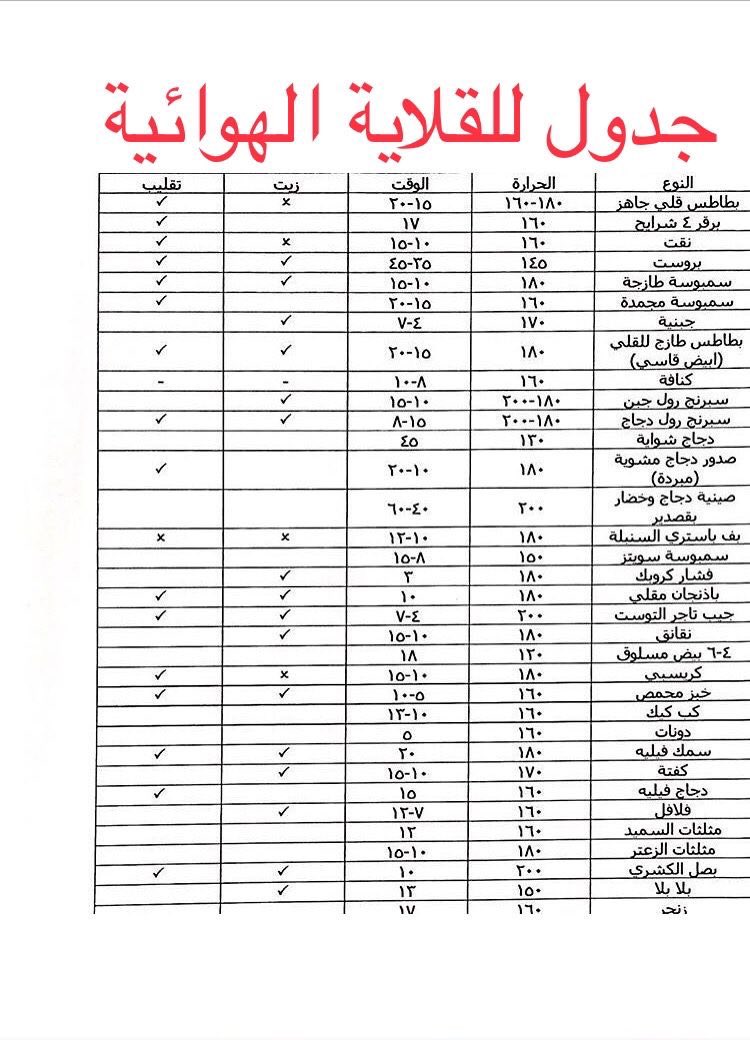 جدول للقلاية الهوائية
النوع الحرارة الوقت زيت تقليب
بطاطس قلي جاهز ١٨٠-١٦٠ ١٥-٢٠ × ✓
برقر ٤ شرايح ١٦٠ ١٧ ✓
نقت ١٦٠ ١٠-١٥ × ✓
بروست ١٤٥ ٣٥-٤٥ ✓ ✓
سمبوسة طازجة ١٨٠ ١٠-١٥ ✓ ✓
سمبوسة مجمدة ١٦٠ ١٥-٢٠ ✓
جبنية ١٧٠ ٤-٧ ✓
بطاطس طازج للقلي
(ابيض قاسي) ١٨٠ ١٥-٢٠ ✓ ✓
كنافة ١٦٠ ٨-١٠ - -
سبرنج رول جبن ١٨٠-٢٠٠ ١٠-١٥ ✓
سبرنج رول دجاج ١٨٠-٢٠٠ ١٥-٨ ✓ ✓
دجاج شواية ١٣٠ ٤٥
صدور دجاج مشوية
(مبردة) ١٨٠ ١٠-٢٠ ✓
صينية دجاج وخضار
بقصدير ٢٠٠ ٤٠-٦٠
بف باستري السنبلة ١٨٠ ١٠-١٢ × ×
سمبوسة سويتز ١٥٠ ٨-١٥
فشار كرويك ١٨٠ ٣ ✓
باذنجان مقلي ١٨٠ ١٠ ✓ ✓
جيب تاجر التوست ٢٠٠ ٤-٧ ✓ ✓
نقانق ١٨٠ ١٠-١٥ ✓
٤-٦ بيض مسلوق ١٢٠ ١٨
كريسبي ١٨٠ ١٠-١٥ × ✓
خبز محمص ١٦٠ ٥-١٠ ✓ ✓
كب كيك ١٦٠ ١٠-١٣
دونات ١٦٠ ٥
سمك فيليه ١٨٠ ٢٠ ✓ ✓
كفتة ١٧٠ ١٠-١٥ ✓
دجاج فيليه ١٦٠ ١٥ ✓
فلافل ١٦٠ ٧-١٢ ✓
مثلثات السميد ١٦٠ ١٢
مثلثات الزعتر ١٨٠ ١٠-١٥
بصل الكشري ٢٠٠ ١٠ ✓ ✓
بلا بلا ١٥٠ ١٣ ✓
زنجر ١٦٠ ١٧